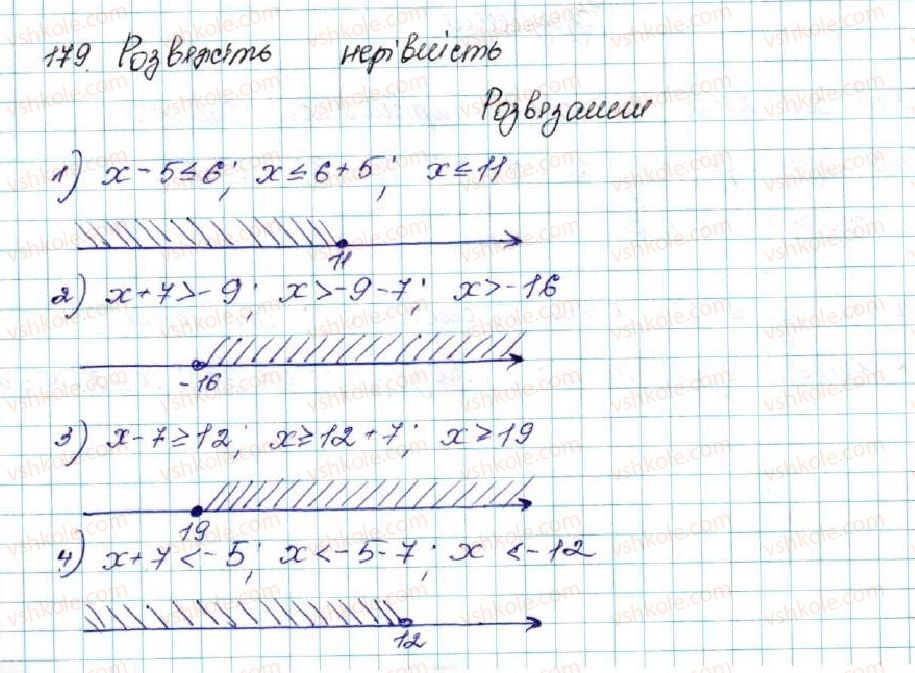 179. Розвяжіть нерівність
Розвязання
1) x - 5 ≤ 6; x ≤ 6 + 5; x ≤ 11
11
2) x + 7 > - 9; x > -9 - 7; x > -16
-16
3) x - 7 ≥ 12; x ≥ 12 + 7; x ≥ 19
19
4) x + 7 < - 5; x < -5 - 7; x < -12
12